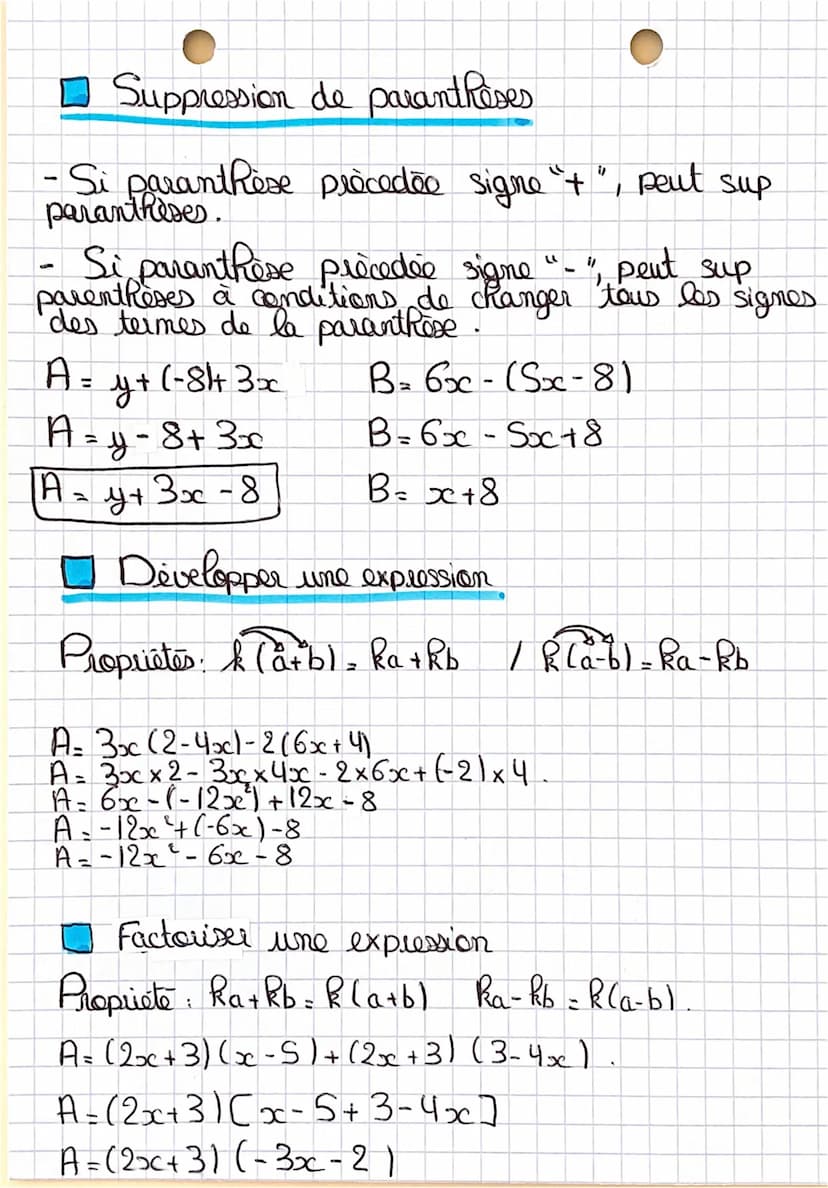 Suppression de paranthèses
- Si paranthèse précédée signe "+", peut sup
paranthèses.
- Si paranthèse précédée signe "-", peut sup
parenthèses à conditions de changer tous les signes
des termes de la paranthèse.
A = y + (-8) + 3x    B = 6x - (5x - 8)
A = y - 8 + 3x    B = 6x - 5x + 8
A = y + 3x - 8    B = x + 8
Développer une expression
Propriétés : k(a+b) = ka + kb / k(a-b) = ka - kb
A = 3x(2-4x) - 2(6x+4)
A = 3x × 2 - 3x × 4x - 2 × 6x + (-2) × 4.
A = 6x - (-12x²) + 12x - 8
A = -12x² + (-6x) - 8
A = -12x² - 6x - 8
Factoriser une expression
Propriété : ka + kb = k(a+b)    ka - kb = k(a-b).
A = (2x+3)(x-5) + (2x+3)(3-4x).
A = (2x+3)[x-5+3-4x]
A = (2x+3)(-3x-2)